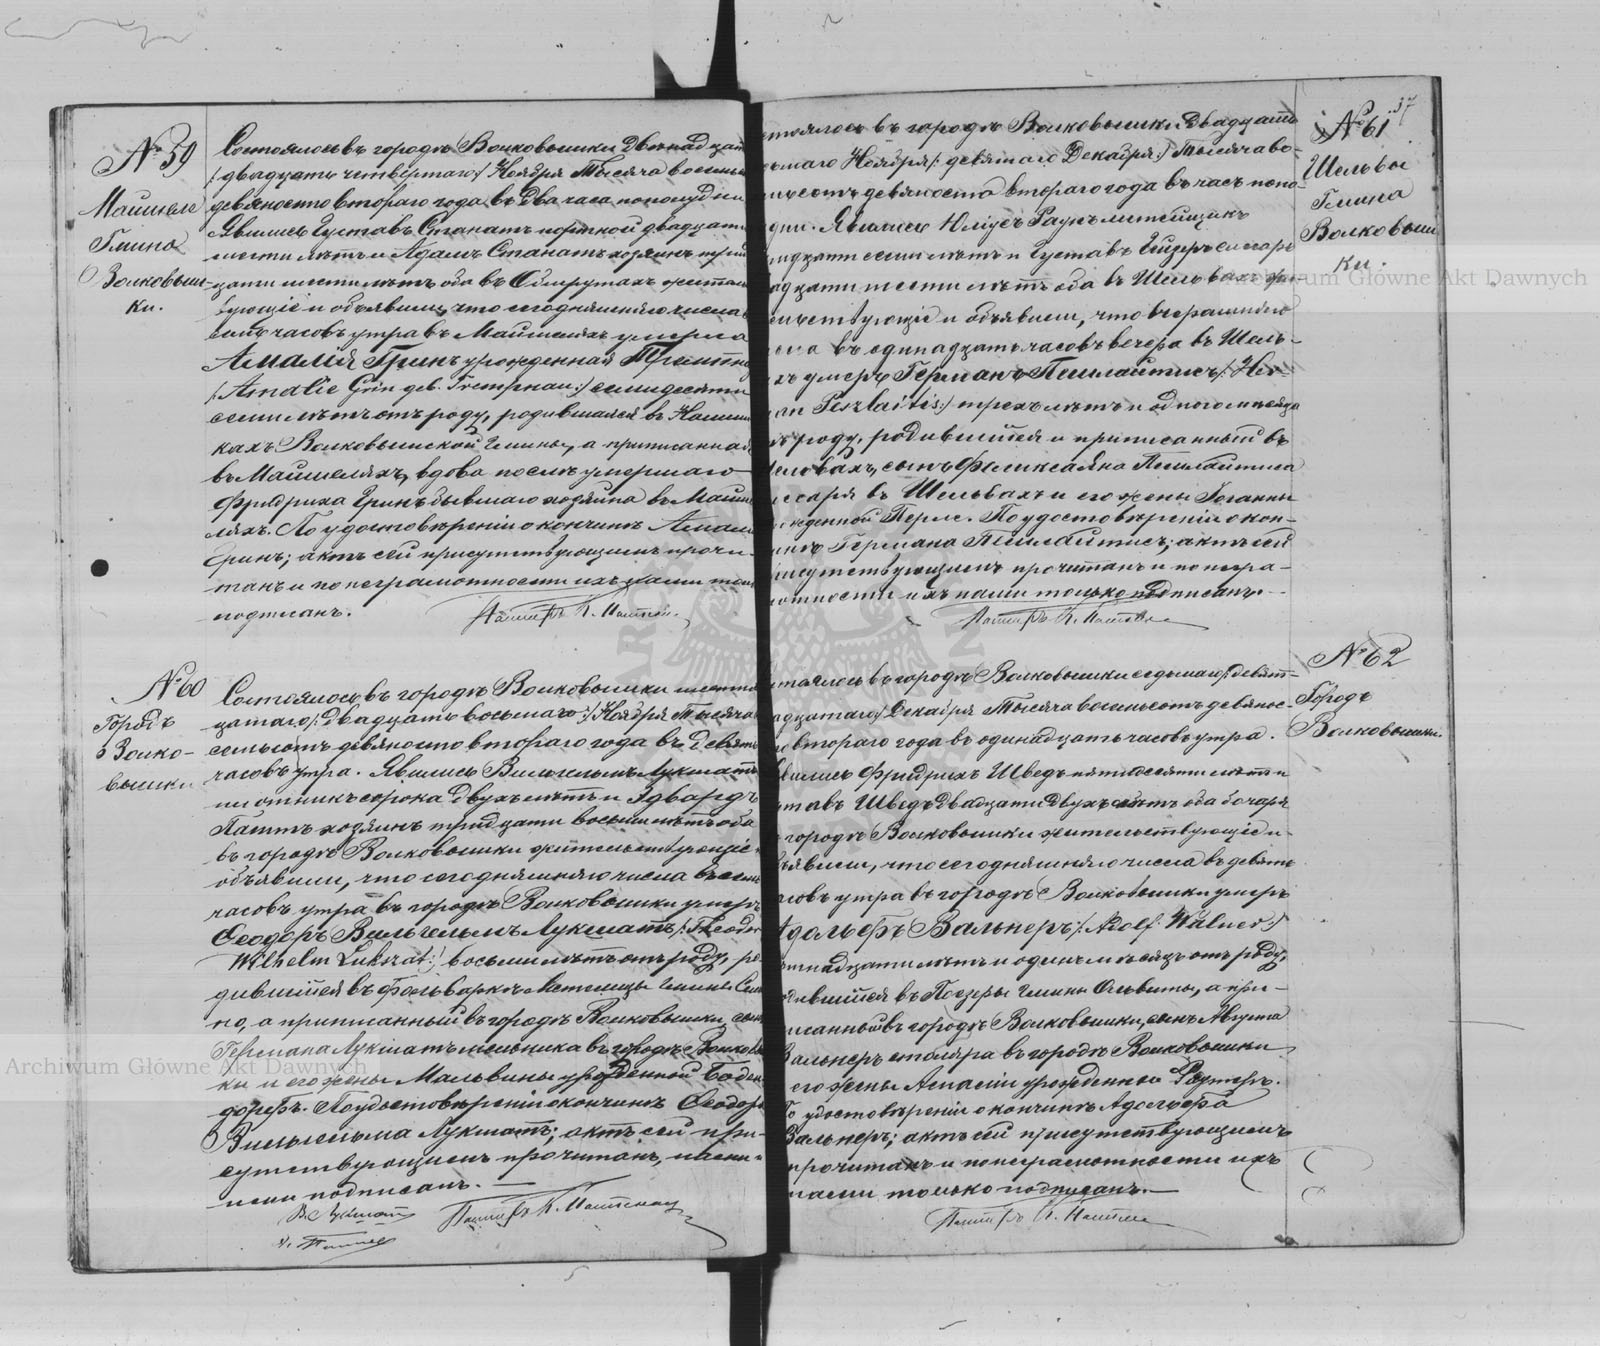 № 59
Машиеле
Гмина
Волковыш-
ки.
Состоялось въ городѣ Волковышки двѣнадцат
/:двадцать четвертаго:/ Ноября Тысяча восемь
девяносто втораго года въ два часа пополудни
Явились Густавъ Станатъ портной двадцати
шести лѣтъ и Адамъ Станатъ хозяинъ
цати шести лѣтъ оба въ жител
ствующіе и объявили, что сегодняшняго числа
часовъ утра въ умерла
Амалія Гринъ урожденная
/:Amalie Grin geb. Trempnau:/ семидесяти
семи лѣтъ отъ роду, родившаяся въ
кахъ Волковышской Гмины, а приписанная
въ Машеляхъ, вдова послѣ умершаго
Фридриха Гринъ бывшаго хозяина въ Маши
ляхъ. По удостовѣреніи о кончинѣ Амал
Гринъ; актъ сей присутствующимъ прочи-
танъ и по неграмотности ихъ нами толь
подписанъ.
Пастиръ К.
№ 60
Городъ
Волко-
вышки
Состоялось въ городѣ Волковышки шестна
цатаго /:двадцать восьмаго:/ Ноября Тысяча
семьсотъ девяносто втораго года въ девять
часовъ утра. Явились Вильгельмъ Лукшатъ
плотникъ сорока двухъ лѣтъ и Эдвардъ
хозяинъ тридцати восьми лѣтъ оба
въ городѣ Волковышки жительствующіе
объявили, что сегодняшняго числа въ семь
часовъ утра въ городѣ Волковышки умеръ
Ѳеодоръ Вильгельмъ Лукшатъ /:Theodor
Wilhelm Lukszat:/ восьми лѣтъ отъ роду, ро
дившійся въ фольваркѣ Метелицы Гмины
но, а приписанный въ городѣ Волковышки, сынъ
Германа Лукшатъ мельника въ городѣ Волковы
ки и его жены Мальвины урожденной Боден
дорфъ. По удостовѣреніи о кончинѣ Ѳеодора
Вильгельма Лукшатъ; актъ сей при-
сутствующимъ прочитанъ, нами и
ими подписанъ. —
В. Лукшатъ
Пастиръ К.
37
№ 61
Шельвы
Гмина
Волковыш
ки.
стоялось въ городѣ Волковышки двадцать
Ноября /:девятаго Декабря:/ Тысяча во-
мьсотъ девяносто втораго года въ часъ попо-
дни. Явились Юлиусъ Раукъ литейщикъ
ридцати семи лѣтъ и Густавъ слесарь
адцати шести лѣтъ оба въ Шельвахъ жи-
ельствующіе и объявили, что вчерашняго
сла въ одинадцать часовъ вечера въ Шель-
хъ умеръ Германъ Пешлайтисъ /:Her-
an Peszlaitis:/ трехъ лѣтъ и одного мѣсяца
ъ роду, родившійся и приписанный въ
ельвахъ, сынъ Пешлайтиса
есаря въ Шельвахъ и его жены Іоганны
жденной Перле. По удостовѣреніи о кон-
инѣ Германа Пешлайтисъ; актъ сей
рисутствующимъ прочитанъ и по негра-
мотности ихъ нами только подписанъ. —
Пастиръ К.
№ 62
Городъ
Волковышки.
стоялось въ городѣ Волковышки седьмаго /:девят-
надцатаго:/ Декабря Тысяча восемьсотъ девянос-
то втораго года въ одинадцать часовъ утра.
вились Фридрихъ Шведъ пятидесяти лѣтъ и
ставъ Шведъ двадцати двухъ лѣтъ оба бочаря
городѣ Волковышки жительствующіе и
ъявили, что сегодняшняго числа въ девять
асовъ утра въ городѣ Волковышки умеръ
Адольфъ Вальнеръ /:Adolf Walner:/
надцати лѣтъ и одинъ мѣсяцъ отъ роду,
одившійся въ Поезеры Гмины Ольвиты, а при-
писанный въ городѣ Волковышки, сынъ Августа
Вальнеръ столяра въ городѣ Волковышки
его жены Амаліи урожденной
По удостовѣреніи о кончинѣ Адольфа
Вальнеръ; актъ сей присутствующимъ
прочитанъ и по неграмотности ихъ
нами только подписанъ. —
Пастиръ К.
Archiwum Główne Akt Dawnych
Archiwum Główne Akt Dawnych